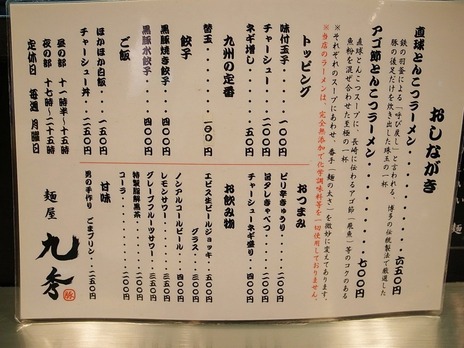 おしながき
直球とんこつラーメン・・・・・・・・・六五〇円
鉄の羽釜による「呼び戻し」と言われる、博多の伝統製法で厳選した
豚の後足だけを炊き出した珠玉の一杯
アゴ節とんこつラーメン・・・・・・・・七〇〇円
直球とんこつスープに、長崎に伝わるアゴ節(飛魚)等のコクのある
魚粉を混ぜ合わせた至極の一杯
※それぞれのスープにあわせ、春手「麺の太さ」を微妙に変えてあります。
※当店のラーメンは、完全無添加で化学調味料等を一切使用しておりません。
トッピング
味付玉子・・・・一〇〇円
チャーシュー・・・二〇〇円
ネギ増し・・・・一〇〇円
九州の定番
替玉・・・・・・一〇〇円
餃子
黒豚焼き餃子・・・四〇〇円
黒豚水餃子・・・・四〇〇円
ご飯
ほかほか白飯・・・一五〇円
チャーシュー丼・・・二五〇円
昼の部 十一時半〜十五時
夜の部 十七時〜二十五時
定休日 毎週 月曜日
おつまみ
ピリ辛きゅうり・・・二〇〇円
旨タレきゃべつ・・・二〇〇円
チャーシューネギ盛り・・・五〇〇円
お飲み物
エビス生ビールジョッキ・・・五〇〇円
グラス・・・三五〇円
ノンアルコールビール・・・四〇〇円
レモンサワー・・・三五〇円
グレープフルーツサワー・・・三五〇円
特製脂解黒茶・・・二〇〇円
コーラ・・・二〇〇円
甘味
男の手作り ごまプリン・・二五〇円
麺屋 九秀